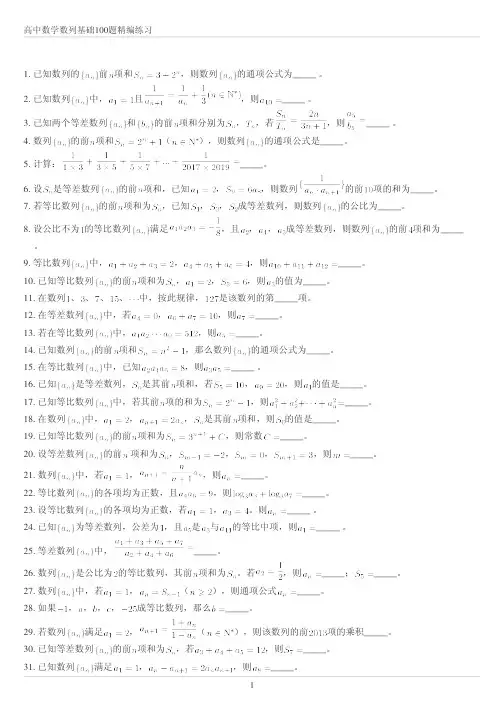 高中数学数列基础100题精编练习
1. 已知数列的{a_n}前n项和S_n = 3 + 2^n，则数列{a_n}的通项公式为_____ 。
2. 已知数列{a_n}中，a_1 = 1且1/a_{n+1} = 1/a_n + 1/3(n∈N*)，则a_{10} =_____ 。
3. 已知两个等差数列{a_n}和{b_n}的前n项和分别为S_n，T_n，若S_n/T_n = 2n/(3n+1)，则a_5/b_5 =_____ 。
4. 数列的{a_n}前n项和S_n = 2^n + 1（n∈N*），则数列{a_n}的通项公式是_____。
5. 计算：1/(1×3) + 1/(3×5) + 1/(5×7) + ⋯ + 1/(2017×2019) =_____。
6. 设S_n是等差数列{a_n}的前n项和，已知a_1 = 2，则数列{1/(a_n·a_{n+1})}的前10项的和为_____ 。
7. 若等比数列{a_n}的前n项和为S_n，已知成等差数列，则数列{a_n}的公比为_____。
8. 设公比不为1的等比数列{a_n}满足a_1a_2a_3 = −1/8，且a_2，a_4，a_3成等差数列，则数列{a_n}的前4项和为_____
。
9. 等比数列{a_n}中，a_1 + a_2 + a_3 = 2，a_4 + a_5 + a_6 = 4，则a_{10} + a_{11} + a_{12} =_____。
10. 已知等比数列{a_n}的前n项和为S_n，a_1 = 2，则的值为_____。
11. 在数列1、3、7、15、⋯中，按此规律，127是该数列的第_____项。
12. 在等差数列{a_n}中，若a_4 = 0，a_6 + a_7 = 10，则a_7 =_____。
13. 若在等比数列{a_n}中，a_1a_2⋯a_9 = 512，则a_5 =_____。
14. 已知数列{a_n}的前n项和S_n = n^2 − 1，那么数列{a_n}的通项公式为_____。
15. 在等比数列{a_n}中，已知，则_____ 。
16. 已知{a_n}是等差数列，S_n是其前n项和，若S_5 = 10，a_9 = 20，则的值是_____。
17. 已知等比数列{a_n}中，若其前n项的和为S_n = 2^n − 1，则a_1^2 + a_2^2 + ⋯ + a_n^2 =_____。
18. 在数列{a_n}中，a_1 = 2，a_{n+1} = 2a_n，S_n是其前n项和，则的值是_____。
19. 已知等比数列{a_n}的前n项和为S_n = 3^{n+1} + C，则常数C =_____。
20. 设等差数列{a_n}的前n 项和为S_n，S_{m−1} = −2，S_m = 0，S_{m+1} = 3，则m =_____。
21. 数列{a_n}中，若a_1 = 1，a_{n+1} = n/(n+1) a_n，则a_n =_____。
22. 等比数列{a_n}的各项均为正数，且，则_____。
23. 设等比数列{a_n}的各项均为正数，若a_1 = 1，a_3 = 4，则a_n =_____ 。
24. 已知{a_n}为等差数列，公差为1，且a_5是a_3与a_{11}的等比中项，则a_1 =_____ 。
25. 等差数列{a_n}中，(a_1 + a_3 + a_5 + a_7)/(a_2 + a_4 + a_6) =_____。
26. 数列{a_n}是公比为2的等比数列，其前n项和为S_n，若a_2 = 1/2，则a_n =_____；S_5 =_____。
27. 数列{a_n}中，若a_1 = 1，a_n = S_{n−1}（n ≥ 2），则通项公式a_n =_____。
28. 如果−1，a，b，c，−25成等比数列，那么b =_____。
29. 若数列{a_n}满足a_1 = 2，a_{n+1} = (1 + a_n)/(1 − a_n)（n∈N*），则该数列的前2013项的乘积_____。
30. 已知等差数列{a_n}的前n项和为S_n，若a_3 + a_4 + a_5 = 12，则S_7 =_____。
31. 已知数列{a_n}满足a_1 = 1，a_n − a_{n+1} = 2a_na_{n+1}，则a_n =_____。
1